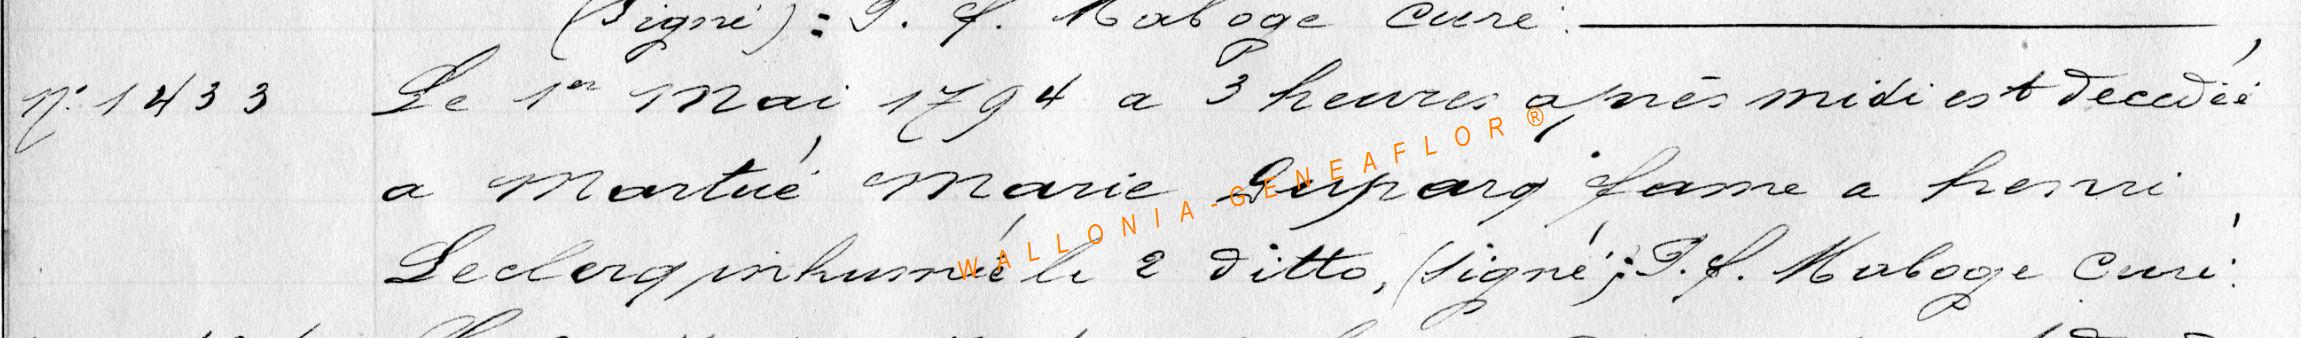 (Signé): P. f. Maboge Curé:
N: 1433 Le 1er Mai 1794 a 3 heures après midi est decedéé
a Martué Marie Gerparq fame a henri
Leclerq inhumé le 2 ditto, (signé): P. f. Maboge Curé:
WALLONIA-GENEAFLOR®